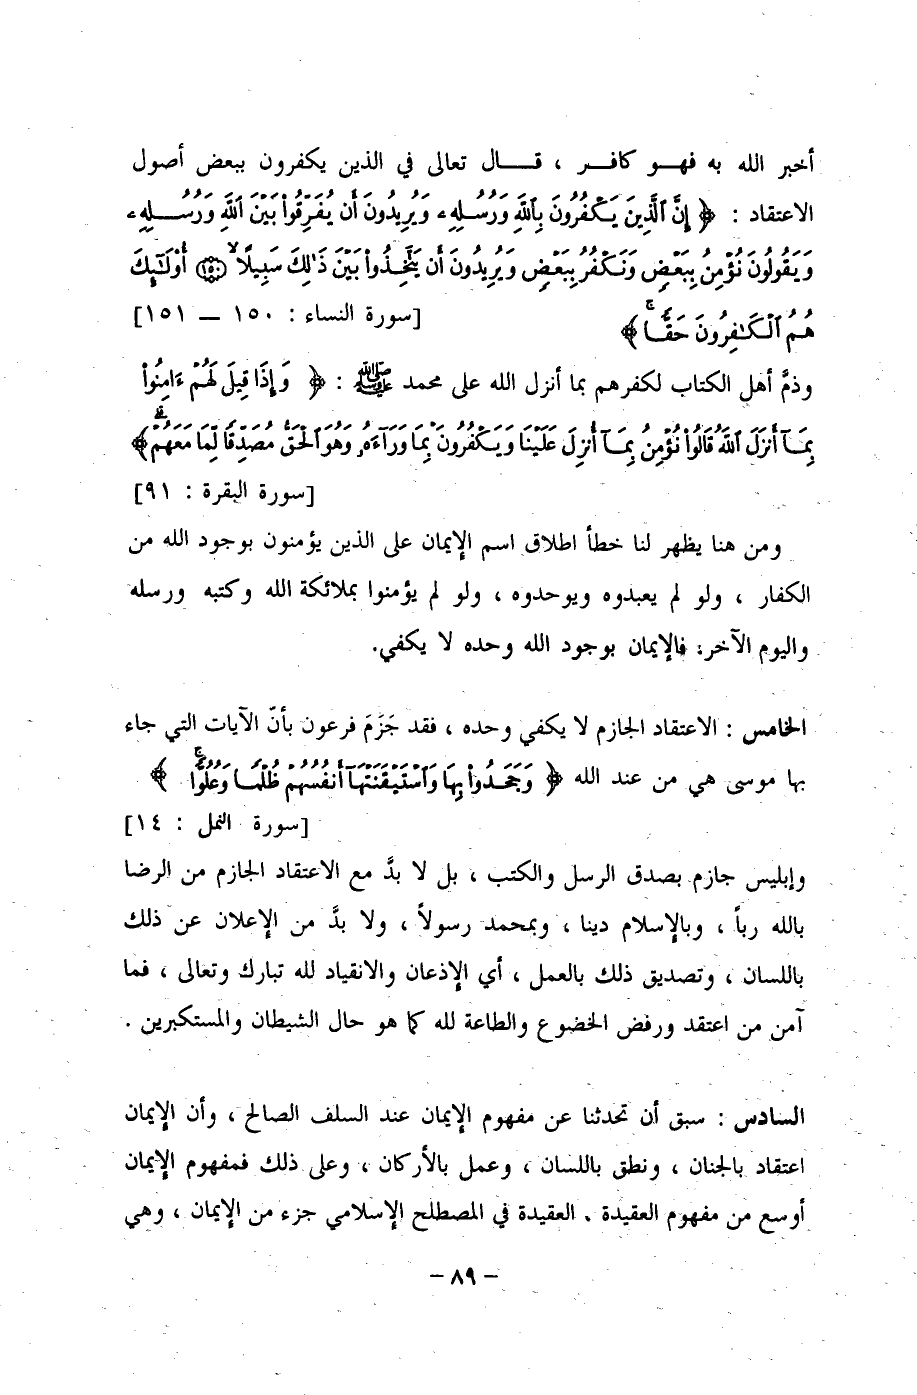 أخبر الله به فهو كافر ، قال تعالى في الذين يكفرون ببعض أصول
الاعتقاد : ﴿ إِنَّ ٱلَّذِينَ يَكْفُرُونَ بِٱللَّهِ وَرُسُلِهِۦ وَيُرِيدُونَ أَن يُفَرِّقُوا۟ بَيْنَ ٱللَّهِ وَرُسُلِهِۦ
وَيَقُولُونَ نُؤْمِنُ بِبَعْضٍ وَنَكْفُرُ بِبَعْضٍ وَيُرِيدُونَ أَن يَتَّخِذُوا۟ بَيْنَ ذَٰلِكَ سَبِيلًا ۙ (١٥٠) أُو۟لَٰٓئِكَ
هُمُ ٱلْكَٰفِرُونَ حَقًّا ۚ ﴾ [سورة النساء : ١٥٠ – ١٥١]
وذمَّ أهل الكتاب لكفرهم بما أنزل الله على محمد ﷺ : ﴿ وَإِذَا قِيلَ لَهُمْ ءَامِنُوا۟
بِمَآ أَنزَلَ ٱللَّهُ قَالُوا۟ نُؤْمِنُ بِمَآ أُنزِلَ عَلَيْنَا وَيَكْفُرُونَ بِمَا وَرَآءَهُۥ وَهُوَ ٱلْحَقُّ مُصَدِّقًا لِّمَا مَعَهُمْ ۗ ﴾
[سورة البقرة : ٩١]
ومن هنا يظهر لنا خطأ اطلاق اسم الإيمان على الذين يؤمنون بوجود الله من
الكفار ، ولو لم يعبدوه ويوحدوه ، ولو لم يؤمنوا بملائكة الله وكتبه ورسله
واليوم الآخر؛ فالإيمان بوجود الله وحده لا يكفي.
الخامس : الاعتقاد الجازم لا يكفي وحده ، فقد جَزَمَ فرعون بأنّ الآيات التي جاء
بها موسى هي من عند الله ﴿ وَجَحَدُوا۟ بِهَا وَٱسْتَيْقَنَتْهَآ أَنفُسُهُمْ ظُلْمًا وَعُلُوًّا ۚ ﴾
[سورة النمل : ١٤]
وإبليس جازم بصدق الرسل والكتب ، بل لا بدَّ مع الاعتقاد الجازم من الرضا
بالله رباً ، وبالإسلام دينا ، وبمحمد رسولاً ، ولا بدَّ من الإعلان عن ذلك
باللسان ، وتصديق ذلك بالعمل ، أي الإذعان والانقياد لله تبارك وتعالى ، فما
آمن من اعتقد ورفض الخضوع والطاعة لله كما هو حال الشيطان والمستكبرين .
السادس : سبق أن تحدثنا عن مفهوم الإيمان عند السلف الصالح ، وأن الإيمان
اعتقاد بالجنان ، ونطق باللسان ، وعمل بالأركان ، وعلى ذلك فمفهوم الإيمان
أوسع من مفهوم العقيدة . العقيدة في المصطلح الإسلامي جزء من الإيمان ، وهي
– ٨٩ –